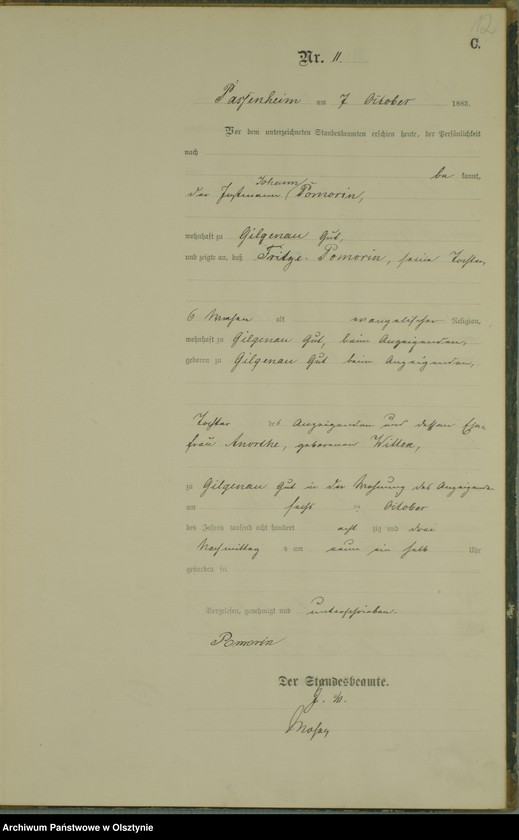 12
C.
Nr. 11.
Passenheim am 7 October 1883.
Vor dem unterzeichneten Standesbeamten erschien heute, der Persönlichkeit
nach
be kannt,
Johann
der Instmann Pomorin,
wohnhaft zu Gilgenau Gut,
und zeigte an, daß Fritze Pomorin, seine Tochter,
6 Wochen alt evangelischer Religion,
wohnhaft zu Gilgenau Gut, beim Anzeigenden,
geboren zu Gilgenau Gut beim Anzeigenden,
Tochter des Anzeigenden und dessen Ehe-
frau Anorthe, geborenen Witten,
zu Gilgenau Gut in der Wohnung des Anzeigenden
am sechs October
des Jahres tausend acht hundert acht zig und drei
Nachmittag s um neun ein halb Uhr
gestorben sei.
Vorgelesen, genehmigt und unterschrieben.
Pomorin
Der Standesbeamte.
Archiwum Państwowe w Olsztynie